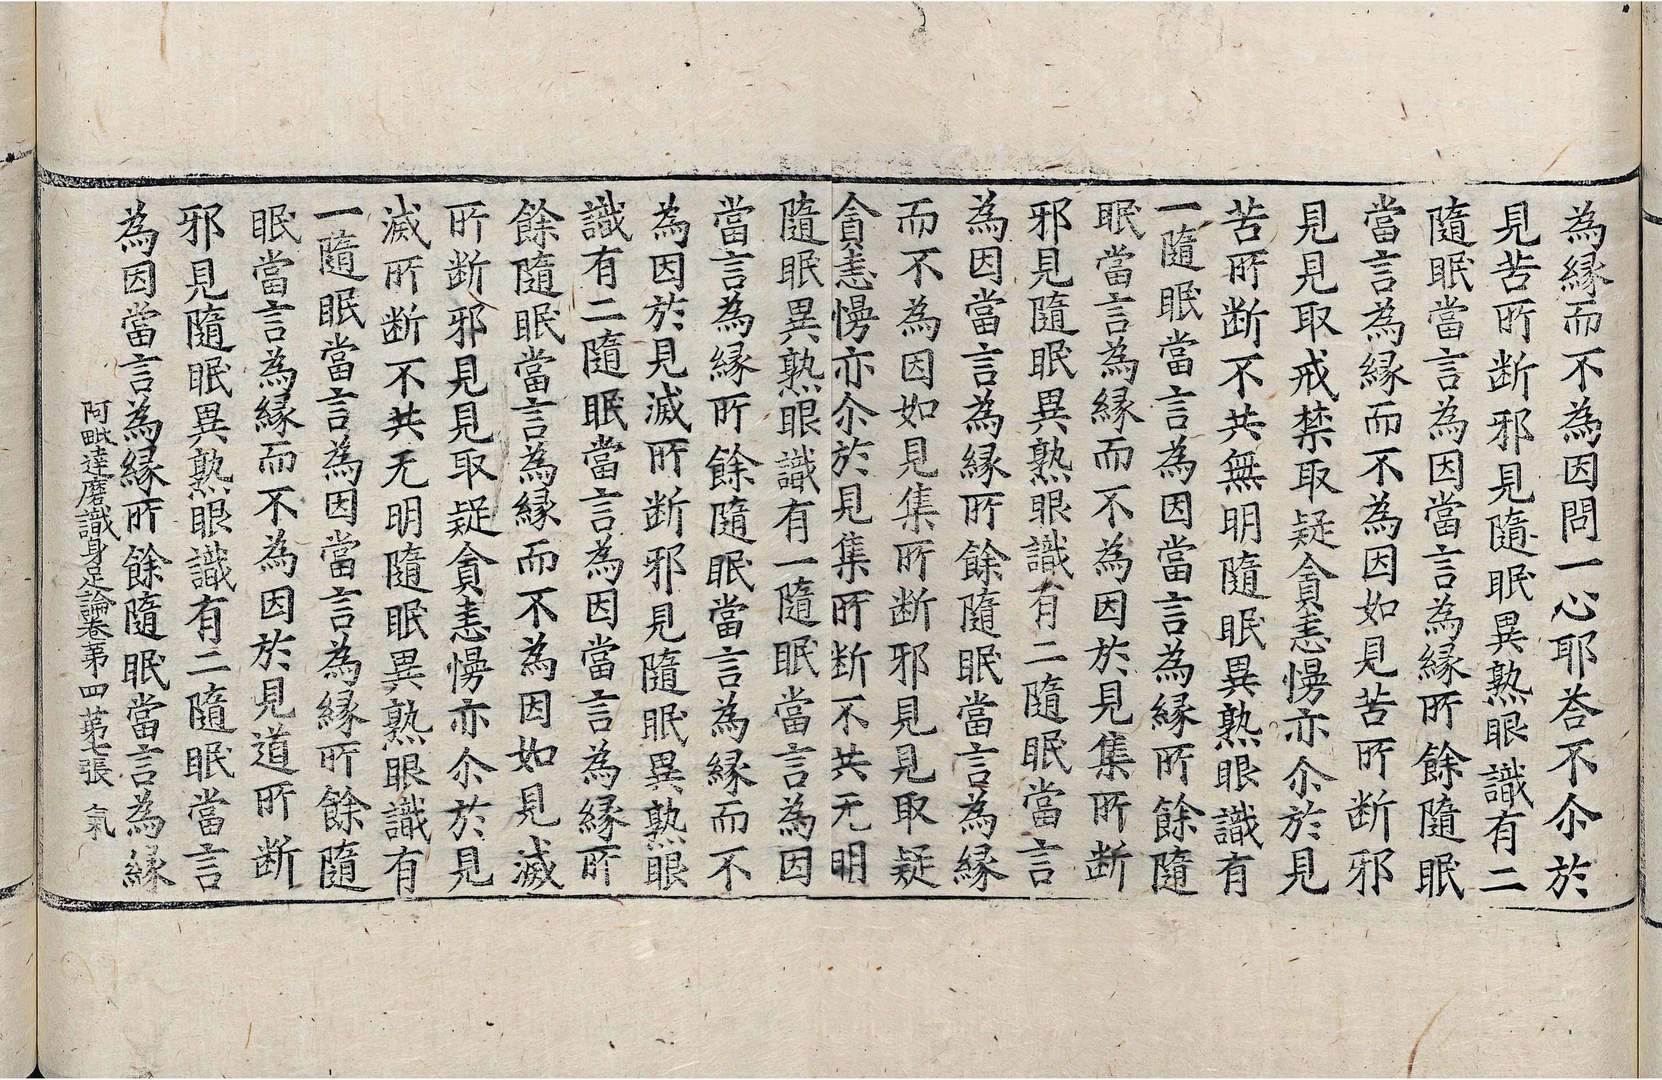 為縁而不為因問一心耶荅不尒於
見苦所断邪見隨眠異熟眼識有二
隨眠當言為因當言為縁所餘隨眠
當言為縁而不為因如見苦所断邪
見見取戒禁取疑貪恚慢亦尒於見
苦所断不共無明隨眠異熟眼識有
一隨眠當言為因當言為縁所餘隨
眠當言為縁而不為因於見集所断
邪見隨眠異熟眼識有二隨眠當言
為因當言為縁所餘隨眠當言為縁
而不為因如見集所断邪見見取疑
貪恚慢亦尒於見集所断不共无明
隨眠異熟眼識有一隨眠當言為因
當言為縁所餘隨眠當言為縁而不
為因於見滅所断邪見隨眠異熟眼
識有二隨眠當言為因當言為縁所
餘隨眠當言為縁而不為因如見滅
所断邪見見取疑貪恚慢亦尒於見
滅所断不共无明隨眠異熟眼識有
一隨眠當言為因當言為縁所餘隨
眠當言為縁而不為因於見道所断
邪見隨眠異熟眼識有二隨眠當言
為因當言為縁所餘隨眠當言為縁
阿毗達磨識身足論卷第四 第七張 氣